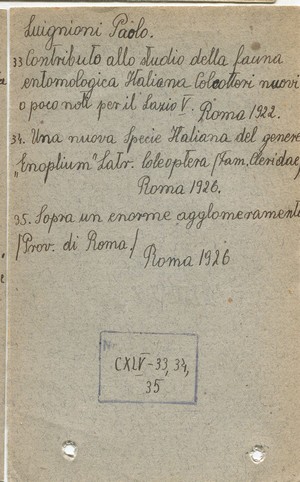 Luignioni Paolo.
33 Contributo allo studio della fauna
entomologica Italiana Coleottori nuovi
o poco noti per il Lazio V. Roma 1922.
34. Una nuova Specie Italiana del genere
„Enoplium" Latr. Coleoptera /Fam. Cleridae/
Roma 1926.
35. Sopra un enorme agglomeramento
/Prov. di Roma/
Roma 1926
Nr.
CXLV-33, 34,
35